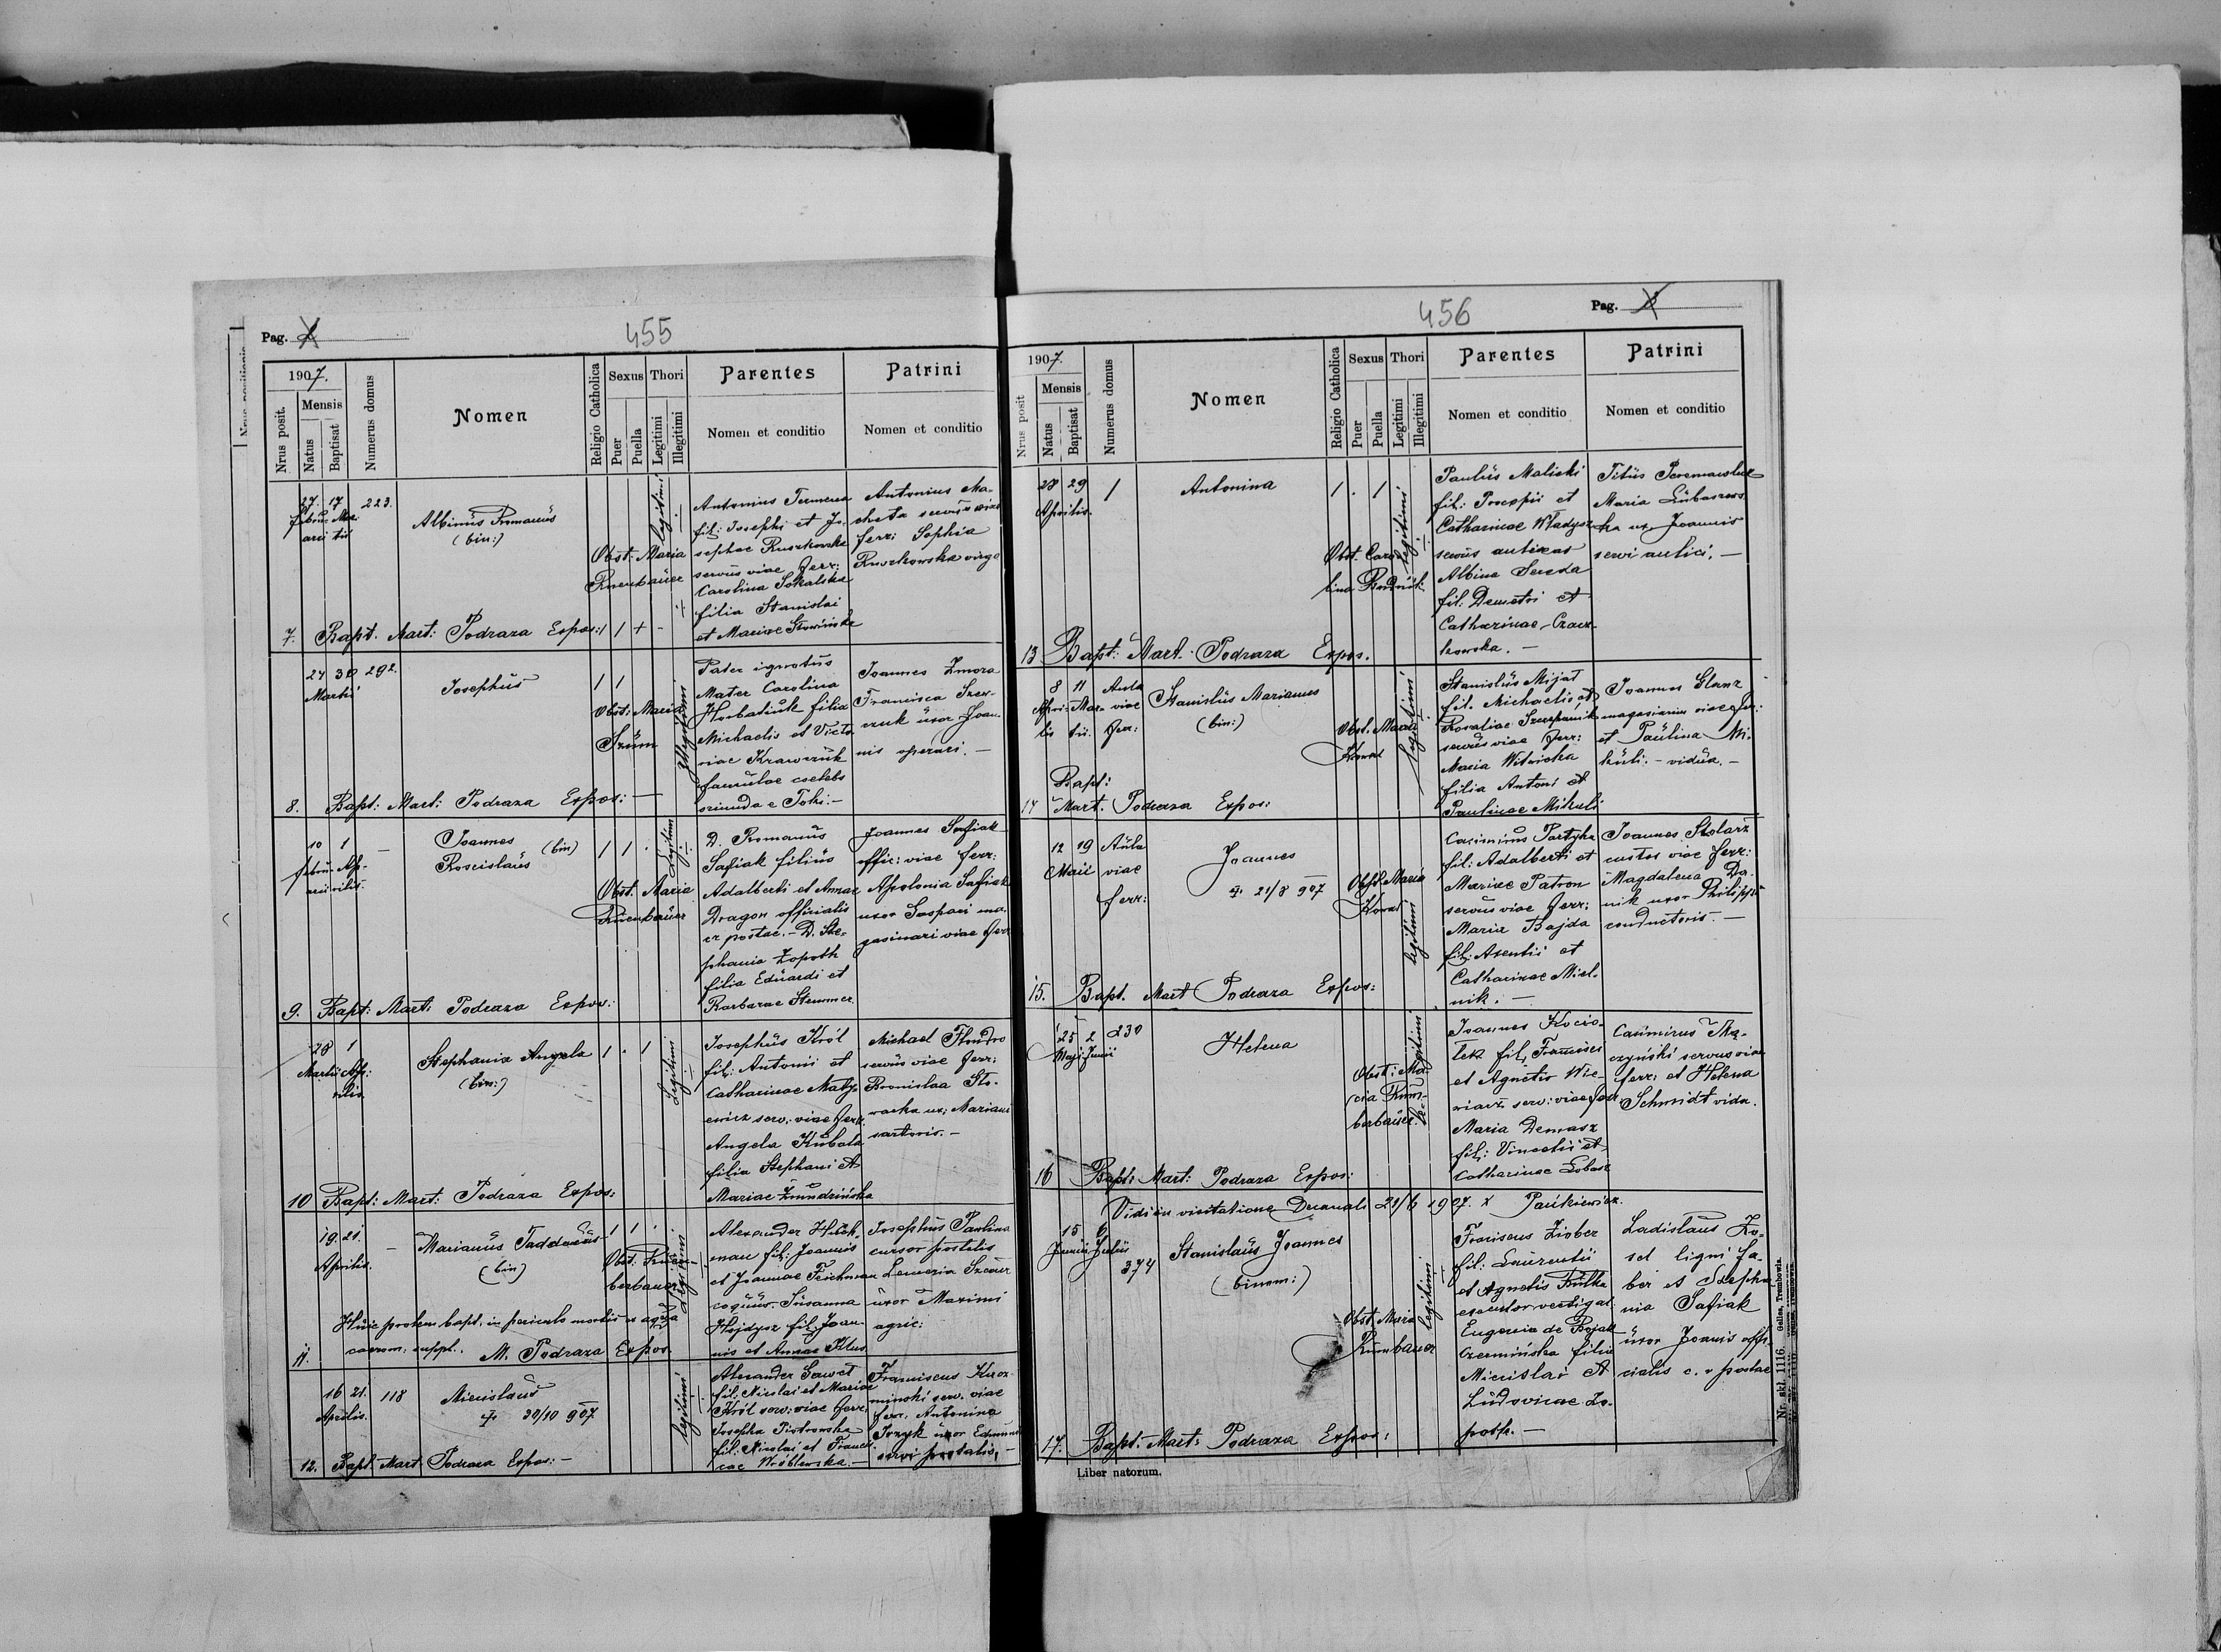 Pag.
455
1907.
Mensis
Nrus posit.
Natus
Baptisat
Numerus domus
Nomen
Religio Catholica
Sexus
Puer
Puella
Thori
Legitimi
Illegitimi
Parentes
Nomen et conditio
Patrini
Nomen et conditio
27. 17 223.
Albinus Romanus
(bin:)
Obst. Maria
legitimi
Antonius
fil: Josephi et Jo-
sephae Ruszkowska
servus viae ferr:
Carolina Sokalska
filia Stanislai
et Mariae Słowińska
Antonius Ma-
cheta servus viae
ferr: Sophia
Ruszkowska virgo
7. Bapt. Mart: Podraza Expos:
24 30 292.
Martii
Josephus
1 1
Obst: Maria
Szum
Illegitimi
Pater ignotus
Mater Carolina
Horbatiuk filia
Michaelis et Victo
riae Krawczuk
famulae coelebs
oriunda e Toki.-
Joannes Zmora
Francisca Szew-
czuk uxor Joan-
nis operari. -
8. Bapt: Mart: Podraza Expos: -
10 1 -
Joannes (bin)
Roscislaus
1 1
Obst. Maria
D. Romanus
Safiak filius
Adalberti et Annae
Dragon officialis
er postae.- D. Ste-
phania Zopoth
filia Eduardi et
Barbarae Stemmer.
Joannes Safiak
offic: viae ferr:
Apolonia Safiak
uxor Gaspari ma-
gasinari viae ferr
9. Bapt: Mart: Podraza Expos:
28 1
Martii Ap-
rilis
Stephania Angela
(bin:)
1 . 1
Legitimi
Josephus Król
fil: Antonii et
Catharinae Maty-
ewicz serv: viae ferr.
Angela Kubala
filia Stephani et
Mariae Żmudzińska
Michael
servus viae ferr:
Bronislaa Sto-
warka ux: Mariani
sartoris. -
10 Bapt: Mart: Podraza Expos:
19. 21.
Aprilis.
-
Marianus Taddaeus
(bin)
1 1 .
Obst.
berbauer
Legitimi
Alexander Huk-
man fil: Joannis
et Joannae Feichman
coquus Susanna
Hajdysz fil: Joan-
nis et Annae Klus
Josephus Paulina
cursor postalis
uxor Maximi
agric:
Huic prolem bapt. in periculo mortis ex aqua
caerem. suppl. M. Podraza Expos.
11.
16 21. 118
Aprilis.
Miecislaus
30/10 907
legitimi
Alexander
fil: Nicolai et Mariae
Król serv: viae ferr.
Josepha Piotrowska
fil: Nicolai et Francis-
cae Wróblewska. -
Franciscus
minski serv. viae
ferr. Antonina
uxor Edmundi
servi postalis. -
12. Bapt. Mart. Podraza Expos: -
456
Pag.
1907.
Nrus posit
Mensis
Natus
Baptisat
Numerus domus
Nomen
Religio Catholica
Sexus
Puer
Puella
Thori
Legitimi
Illegitimi
Parentes
Nomen et conditio
Patrini
Nomen et conditio
28 29 1
Aprilis.
Antonina
1 . 1
Obst. Caro
lina
legitimi
Paulus Maliski
fil: Procopii et
Catharinae Władysz
servus
Albina Sereda
fil: Demetri et
Catharinae Czacz-
kowska. -
Titus
Maria Lubaszews
ka ux Joannis
servi aulici. -
13 Bapt: Mart. Podraza Expos.
8 11 Aula
viae
ferr:
Stanislus Marianus
(bin:)
Obst. Maria
legitimi
Stanislus Mijat
fil. Michaelis et
Rosaliae Szczepanik
servus viae ferr:
Maria Witwicka
filia Antoni et
Paulinae Mikuli
Joannes Glanz
magasiarius viae ferr:
et Paulina Mi-
kuli. - vidua. -
Bapt:
14 Mart. Podraza Expos:
12 19 Aula
Maii viae
ferr:
Joannes
21/8 907
Obst. Maria
legitimi
Casimirus Partyka
fil: Adalberti et
Mariae Patron
servus viae ferr:
Maria Bajda
fil: Asentii et
Catharinae Miel-
nik. -
Joannes Stolarz
custos viae ferr:
Magdalena Da-
nik uxor Philippi
conductoris. -
15. Bapt. Mart Podraza Expos:
25 2 230
Maji Junii
Helena
Obst: Ma
ria
berbauer.
legitimi
Joannes Kocio-
łek fil. Francisci
et Agnetis Wie-
serv: viae ferr
Maria Demasz
fil: Vincentii et
Catharinae
Casimirus Mą-
czyński servus viae
ferr: et Helena
Schmidt vidu.
16 Bapt: Mart: Podraza Expos:
Vidi in visitatione Decanali 21/6 1907. X
15 6
Junii Julii
374
Stanislaus Joannes
(binom:)
Obst. Maria
legitimi
Franiscus Ziober
fil: Laurentii
et Agnetis Bułka
executor vectigal
Eugenia de Bojak
Czermińska filia
Miecislai et
Ludovicae Zo-
poth. -
Ladislaus Ko-
sel ligni fa-
ber et Stepha
nia Safiak
uxor Joannis offi-
cialis c. r postae
17. Bapt. Mart: Podraza Expos:
Liber natorum.
Nr. skl. 1116. Gelles, Trembowla.